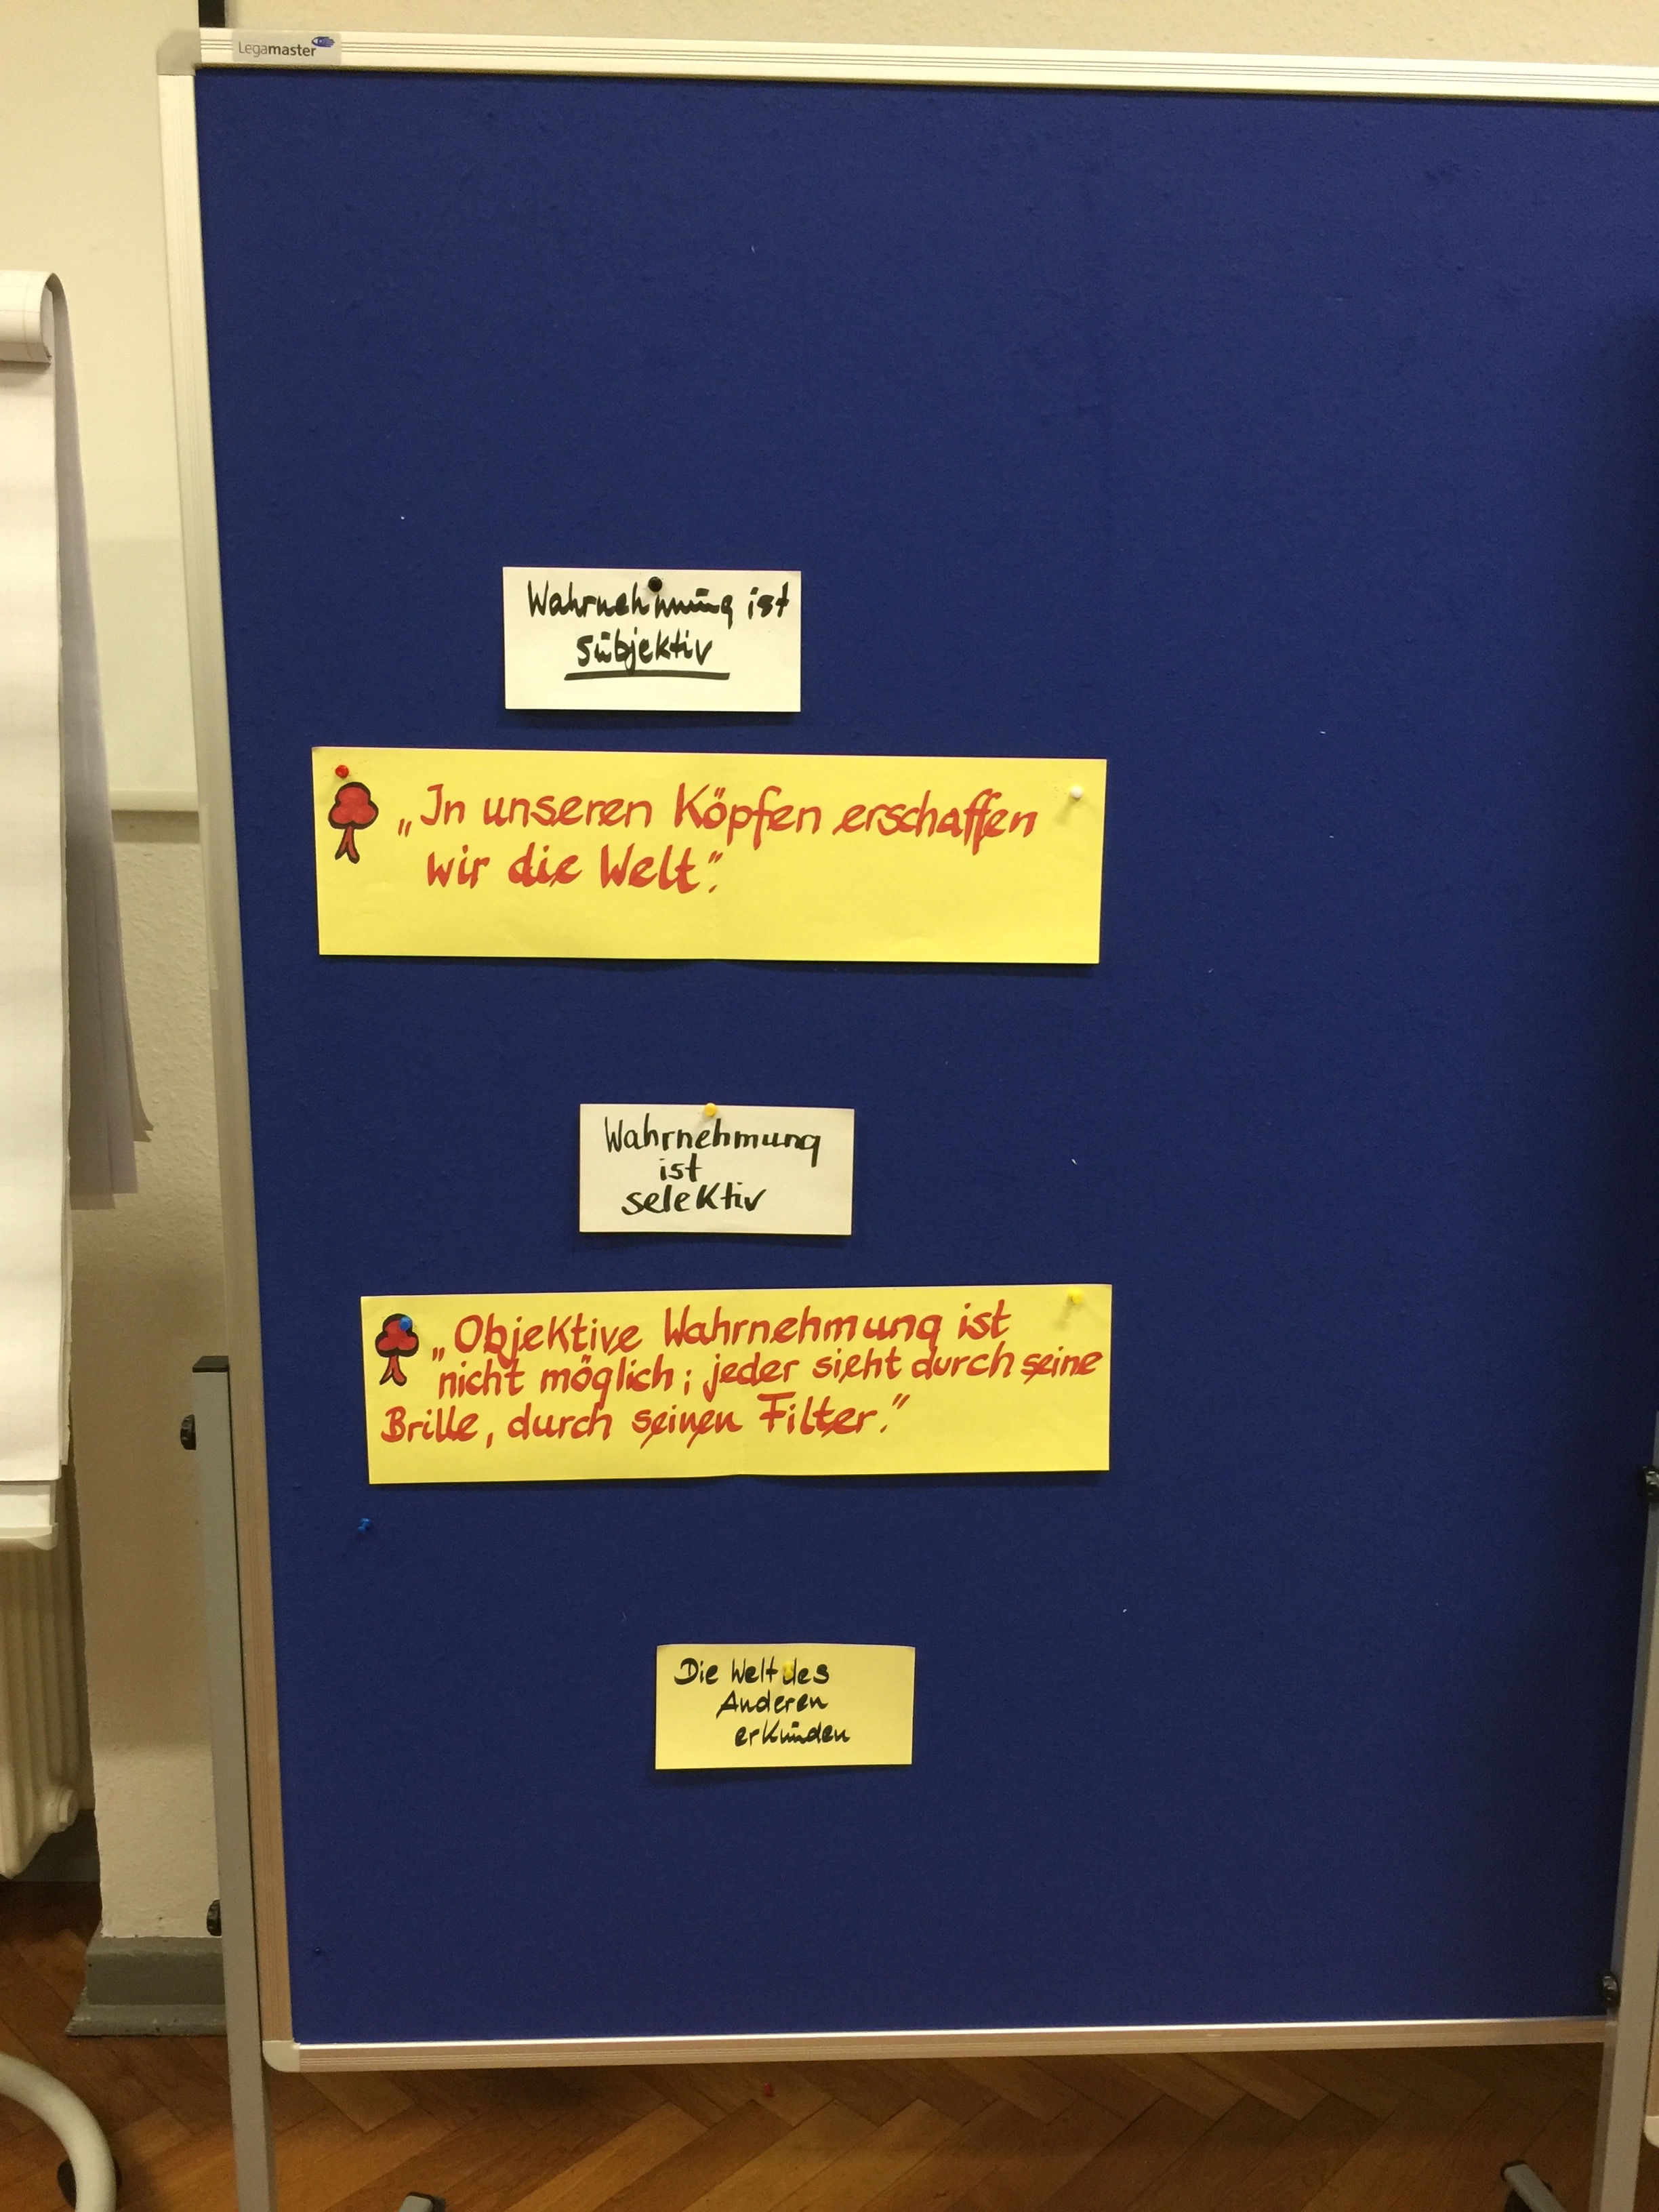 Legamaster
Wahrnehmung ist
subjektiv
„In unseren Köpfen erschaffen
wir die Welt“.
Wahrnehmung
ist
selektiv
„Objektive Wahrnehmung ist
nicht möglich; jeder sieht durch seine
Brille, durch seinen Filter.“
Die Welt des
Anderen
erkunden